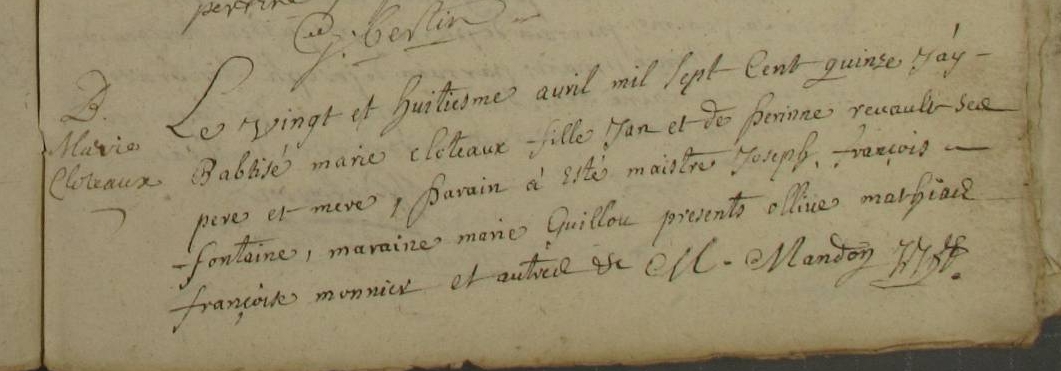 Bertin
B.
Marie
Cloteaux
Le vingt et huitiesme avril mil sept Cent quinze J'ay
Babtisé marie cloteaux fille Jan et de perinne revault ses
pere et mere, parain à esté maistre Joseph françois
fontaine, maraine marie Guillou presents ollive mathias
françoise monnier et autres de Mandon